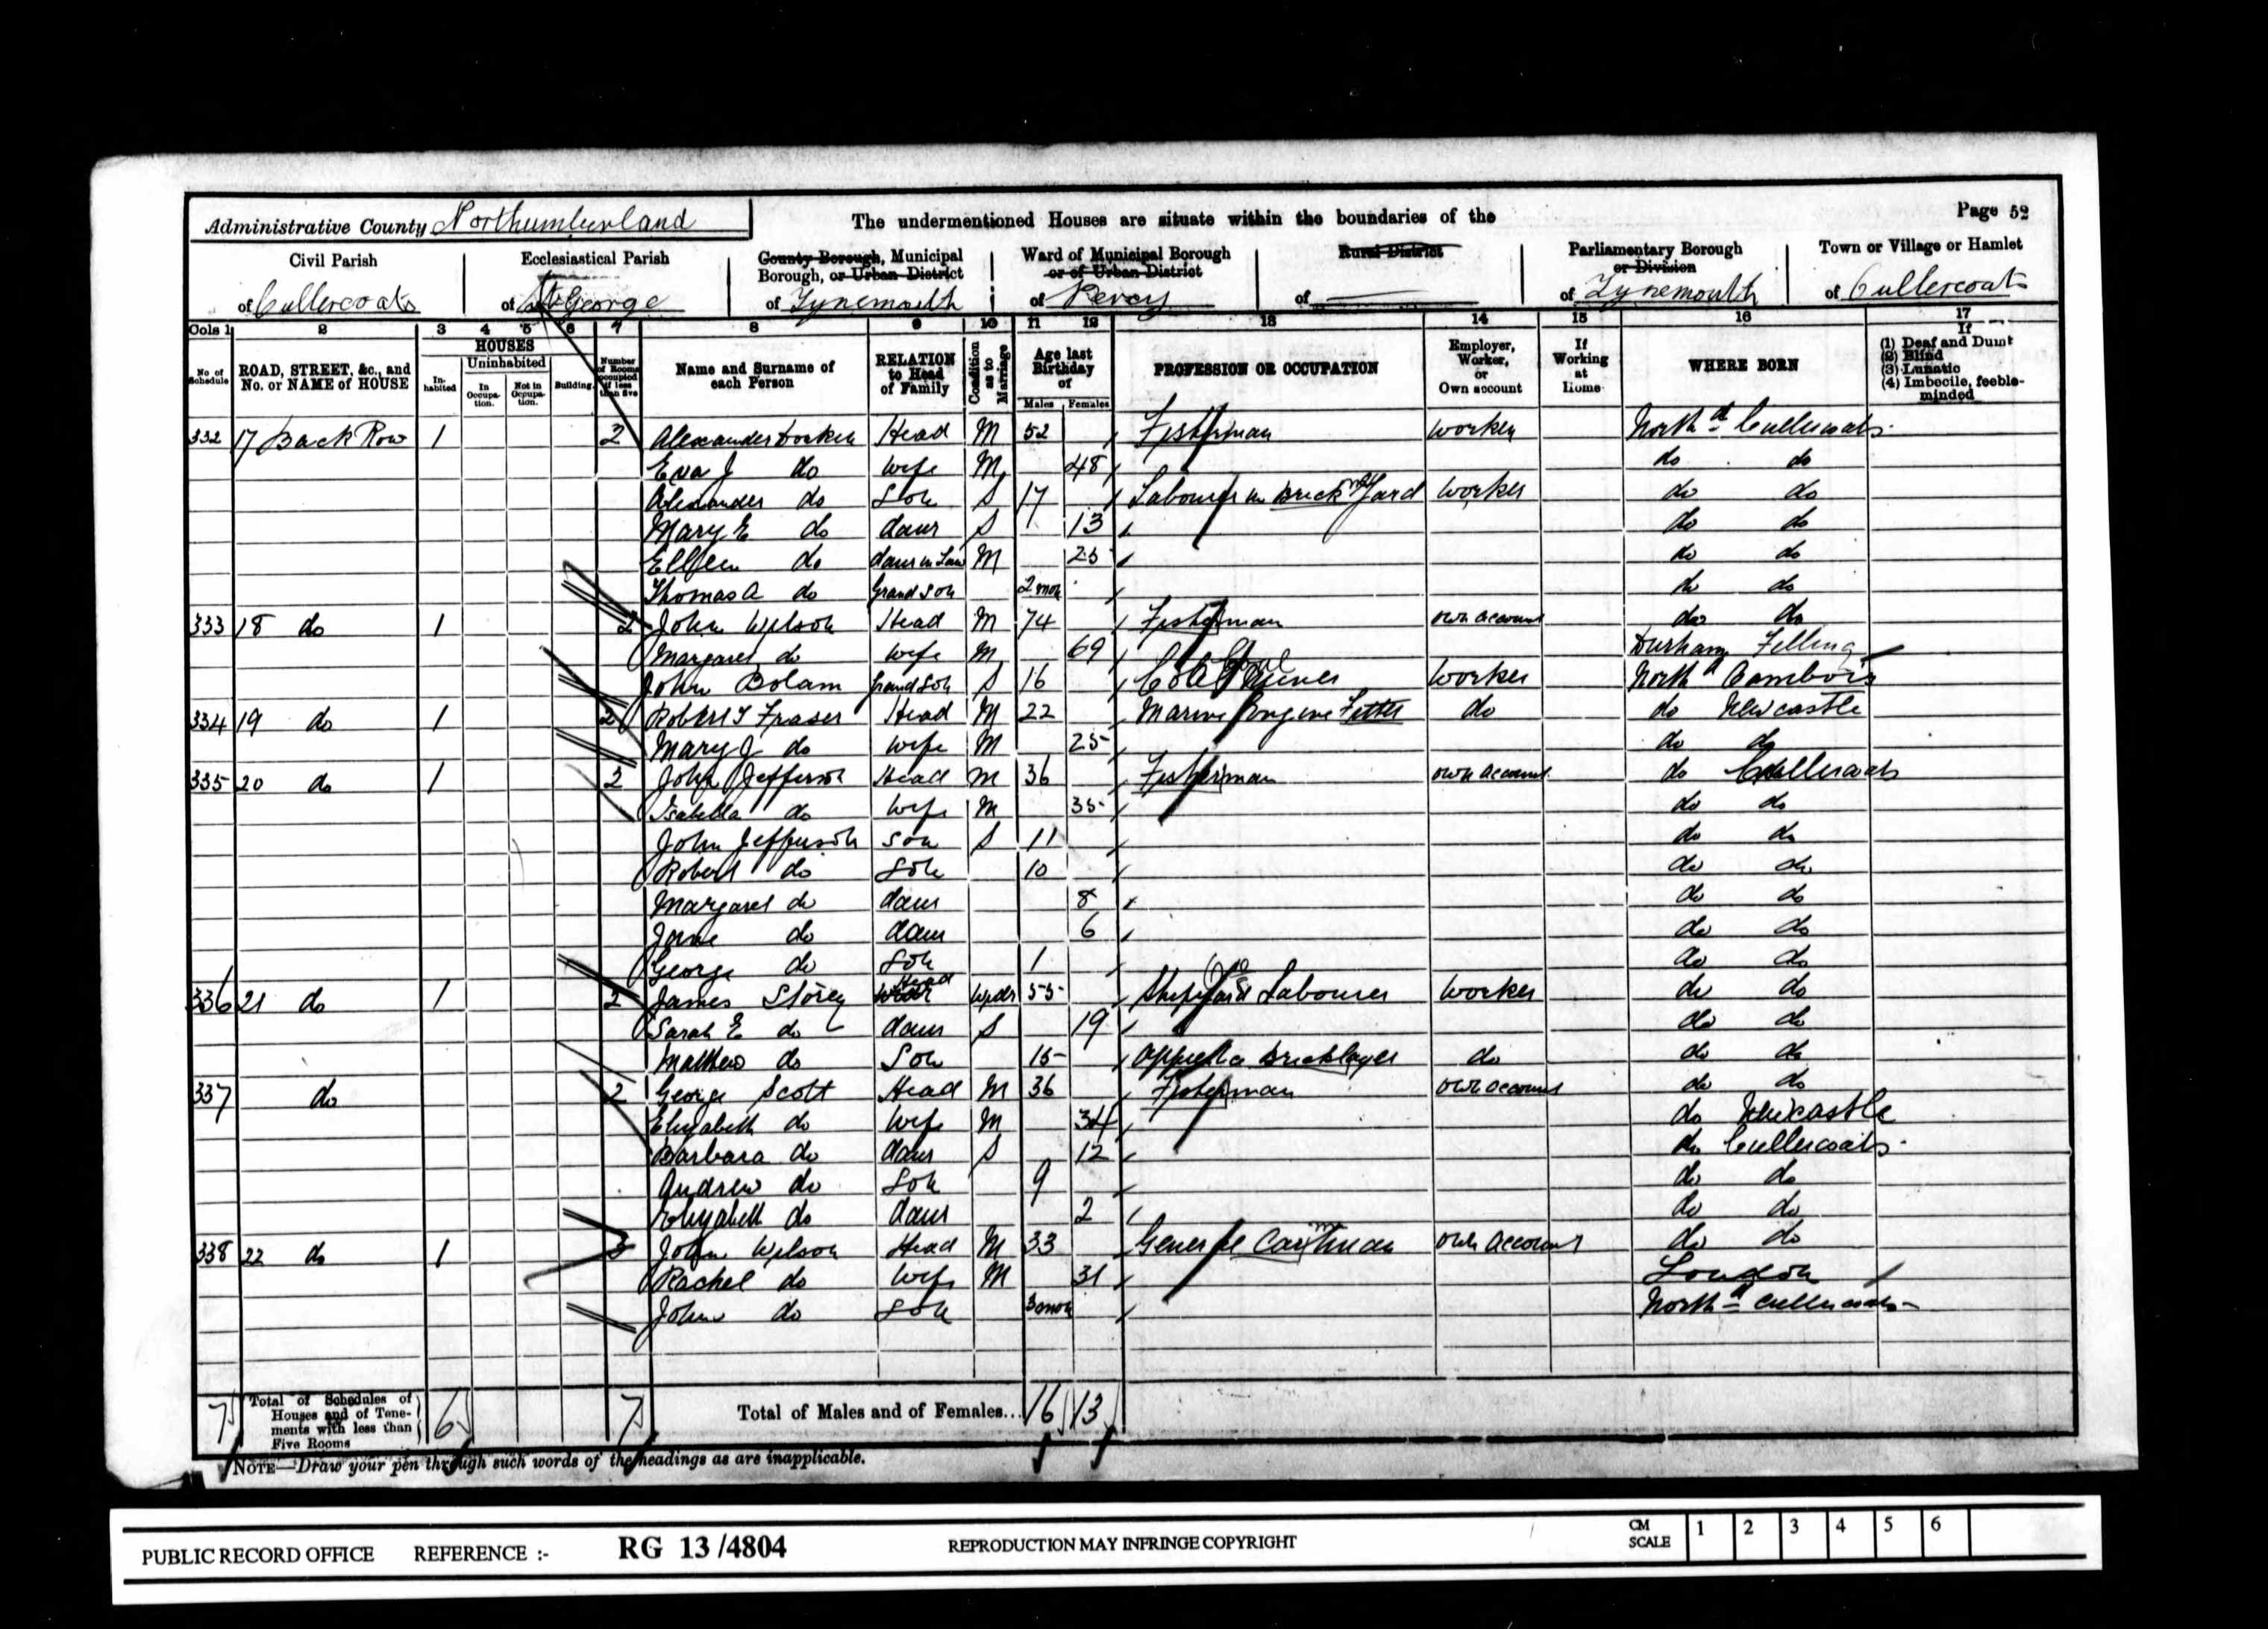 Administrative County Northumberland
The undermentioned Houses are situate within the boundaries of the
Page 52
Civil Parish of Cullercoats
Ecclesiastical Parish of St George
County Borough, Municipal Borough, or Urban District of Tynemouth
Ward of Municipal Borough or of Urban District of Percy
Rural District of
Parliamentary Borough or Division of Tynemouth
Town or Village or Hamlet of Cullercoats
Cols 1 2 3 4 5 6 7 8 9 10 11 12 13 14 15 16 17
No of Schedule
ROAD, STREET, &c., and No. or NAME of HOUSE
HOUSES
Inhabited
Uninhabited
In Occupation.
Not in Occupation.
Building.
Number of Rooms occupied if less than five
Name and Surname of each Person
RELATION to Head of Family
Condition as to Marriage
Age last Birthday of
Males Females
PROFESSION OR OCCUPATION
Employer, Worker, or Own account
If Working at Home
WHERE BORN
If (1) Deaf and Dumb (2) Blind (3) Lunatic (4) Imbecile, feeble-minded
332 17 Back Row 1 2 Alexander Head M 52 Fisherman worker North d Cullercoats
Eva J do wife M 48 do do
Alexander do Son S 17 Labourer in Brick Yard worker do do
Mary E do daur S 13 do do
Ellen do daur in Law M 25 do do
Thomas A do Grandson 2 mon do do
333 18 do 1 2 John Wilson Head M 74 Fisherman own account do do
Margaret do wife M 69 Durham Felling
John Bolam Grandson S 16 Coal worker North d Cambois
334 19 do 1 2 Robert J Fraser Head M 22 Marine Engine Fitter do do Newcastle
Mary J do wife M 25 do do
335 20 do 1 2 John Jefferson Head M 36 Fisherman own account do Cullercoats
Isabella do wife M 35 do do
John Jefferson Son S 11 do do
Robert do Son 10 do do
Margaret do daur 8 do do
Jane do daur 6 do do
George do Son 1 do do
336 21 do 1 2 James Storey Head Wdr 55 Shipyard Labourer worker do do
Sarah E do daur S 19 do do
Matthew do Son 15 Bricklayer do do do
337 do 2 George Scott Head M 36 Fisherman own account do do
Elizabeth do wife M 34 do Newcastle
Barbara do daur S 12 do Cullercoats
Andrew do Son 9 do do
Elizabeth do daur 2 do do
338 22 do 1 John Wilson Head M 33 General Cartman own account do do
Rachel do wife M 31 London
John do Son 3 mon North d Cullercoats
7 Total of Schedules of Houses and of Tenements with less than Five Rooms 6 7 Total of Males and of Females... 16 13
NOTE—Draw your pen through such words of the headings as are inapplicable.
PUBLIC RECORD OFFICE REFERENCE :- RG 13/4804 REPRODUCTION MAY INFRINGE COPYRIGHT
CM SCALE 1 2 3 4 5 6